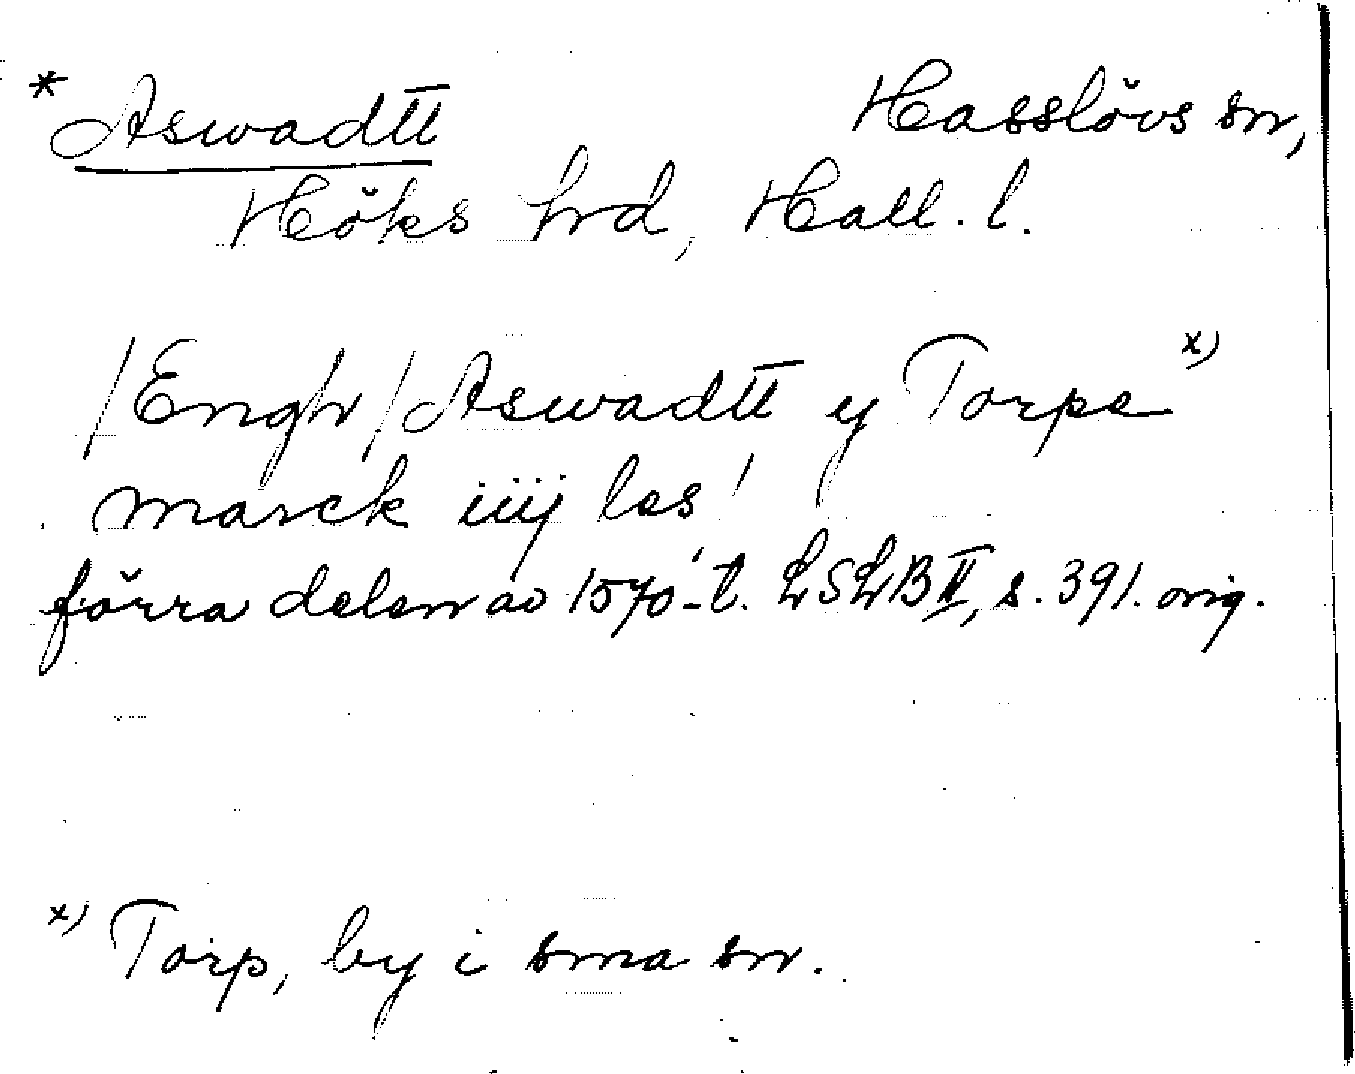 * Aswadtt Hasslövs sn,
Höks hrd, Hall. l.
/Engh/ Aswadtt y Torpe x)
marck iiij les!
förra delen av 1570-t. LSLB II, s. 391. orig.
x) Torp, by i sma sn.